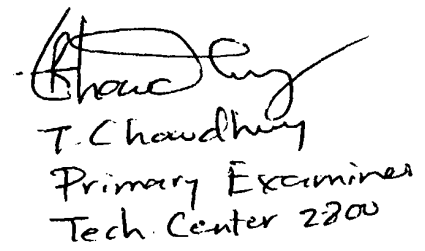 T. Chowdhury
Primary Examiner
Tech. Center 2800